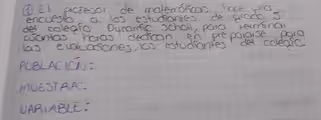 ② El profesor de matemáticas hace una
encuesta a los estudiantes de grado 5
del colegio Durante School, para
cuantas horas dedican en prepararse para
las evaluaciones, los estudiantes del colegio.
POBLACIÓN:
MUESTRA:
VARIABLE: